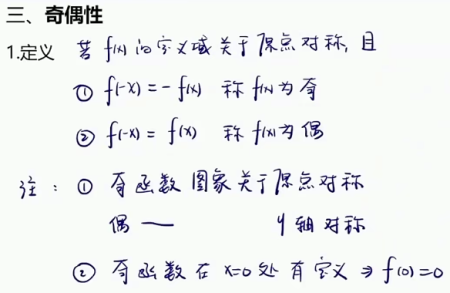 三、奇偶性
1.定义 若 f(x) 的定义域关于原点对称, 且
① f(-x) = - f(x) 称 f(x) 为奇
② f(-x) = f(x) 称 f(x) 为偶
注: ① 奇函数图象关于原点对称
偶 — y轴对称
② 奇函数在 x=0 处有定义 ⇒ f(0)=0